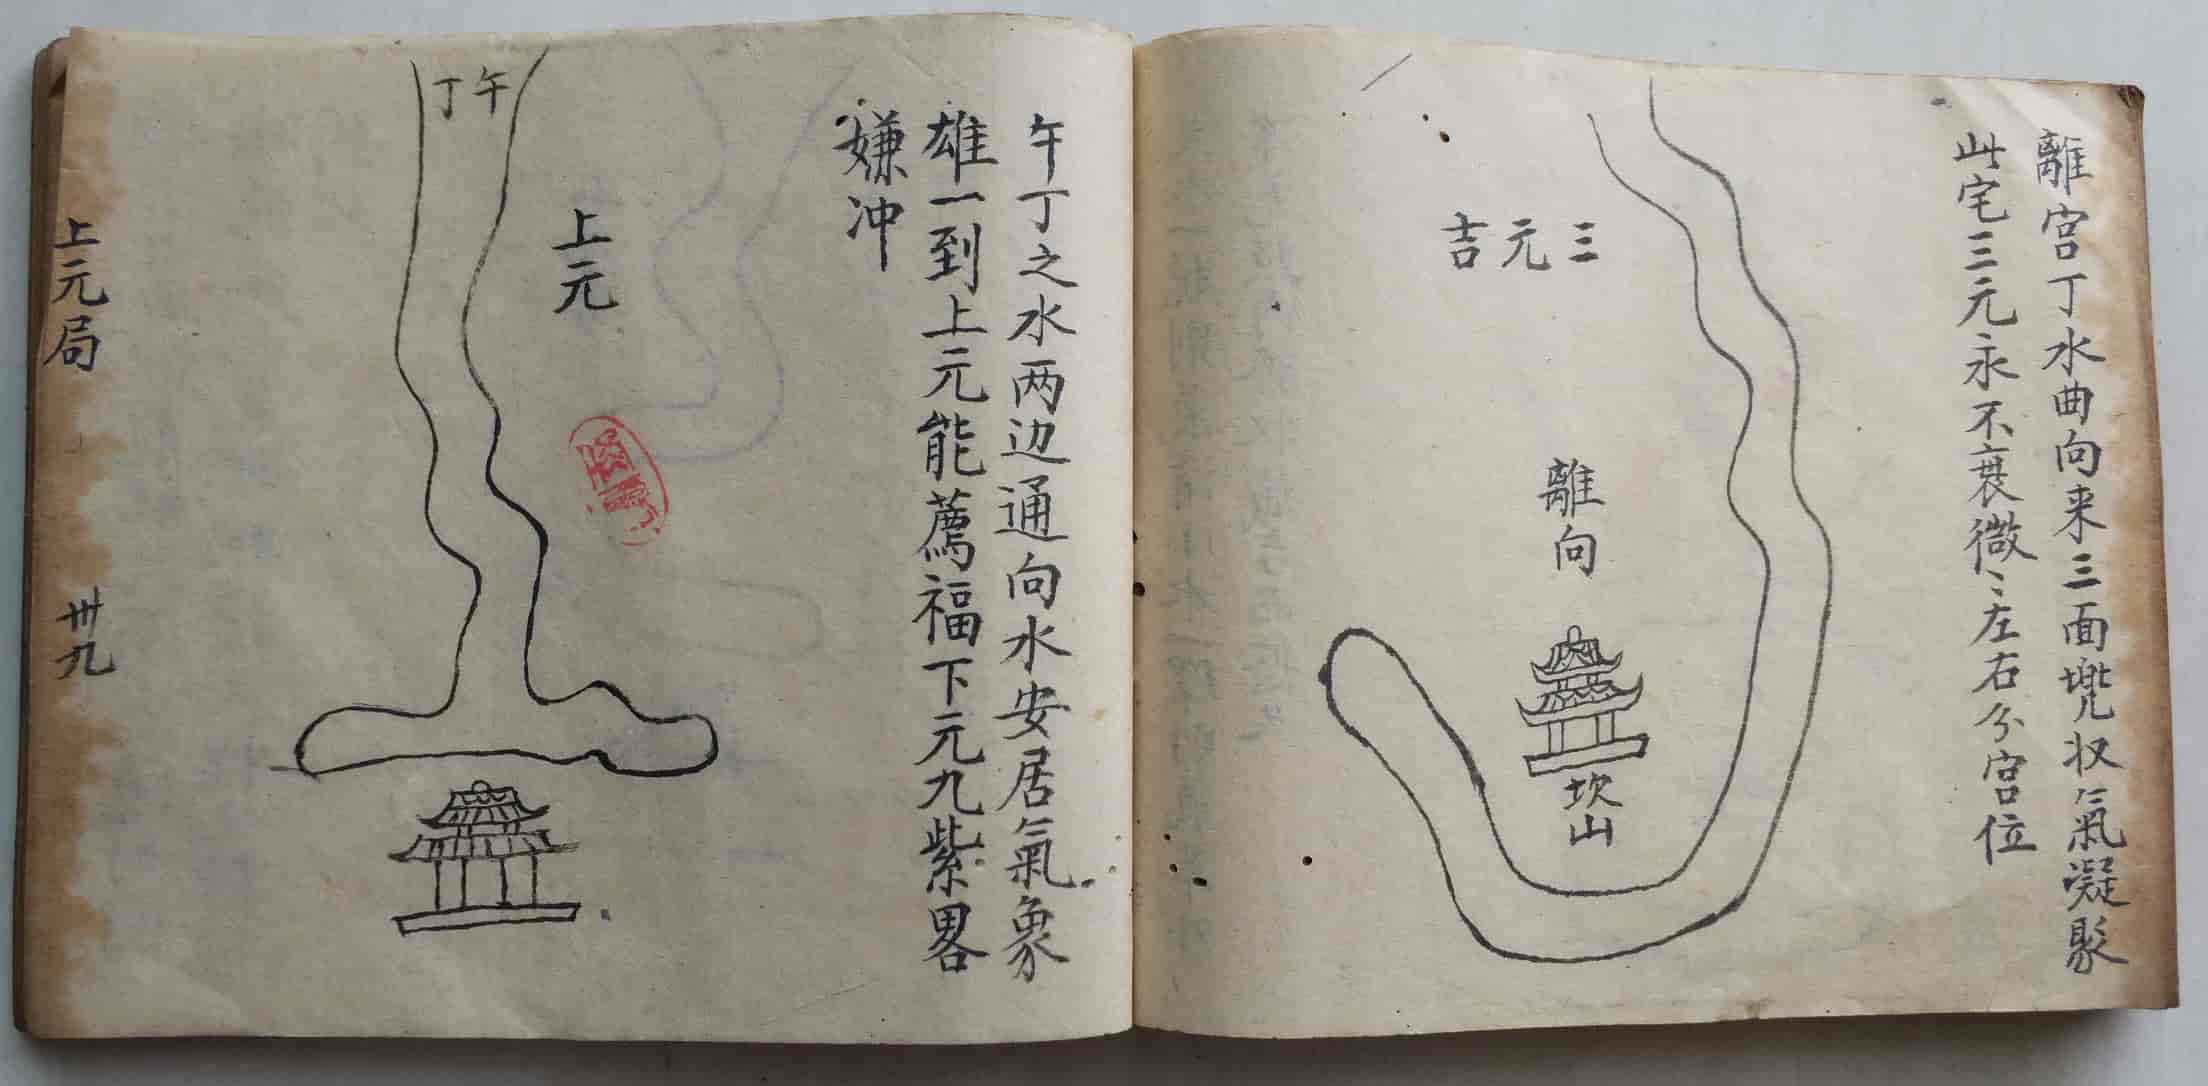 離宫丁水曲向来三面兠収氣凝聚
此宅三元永不衰微〻左右分宫位
三元吉
離向
坎山
午丁之水两边通向水安居氣象
雄一到上元能薦福下元九紫畧
嫌冲
上元
午丁
上元局
卅九